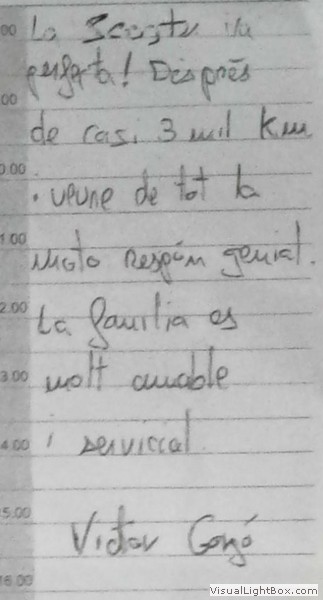 00 La Scooter va
perfecta! Després
00 de casi 3 mil Km
0.00 i veure de tot la
1:00 moto respón genial.
2.00 La família es
3:00 molt amable
4.00 i servicial
5.00 Victor
16.00
VisualLightBox.com